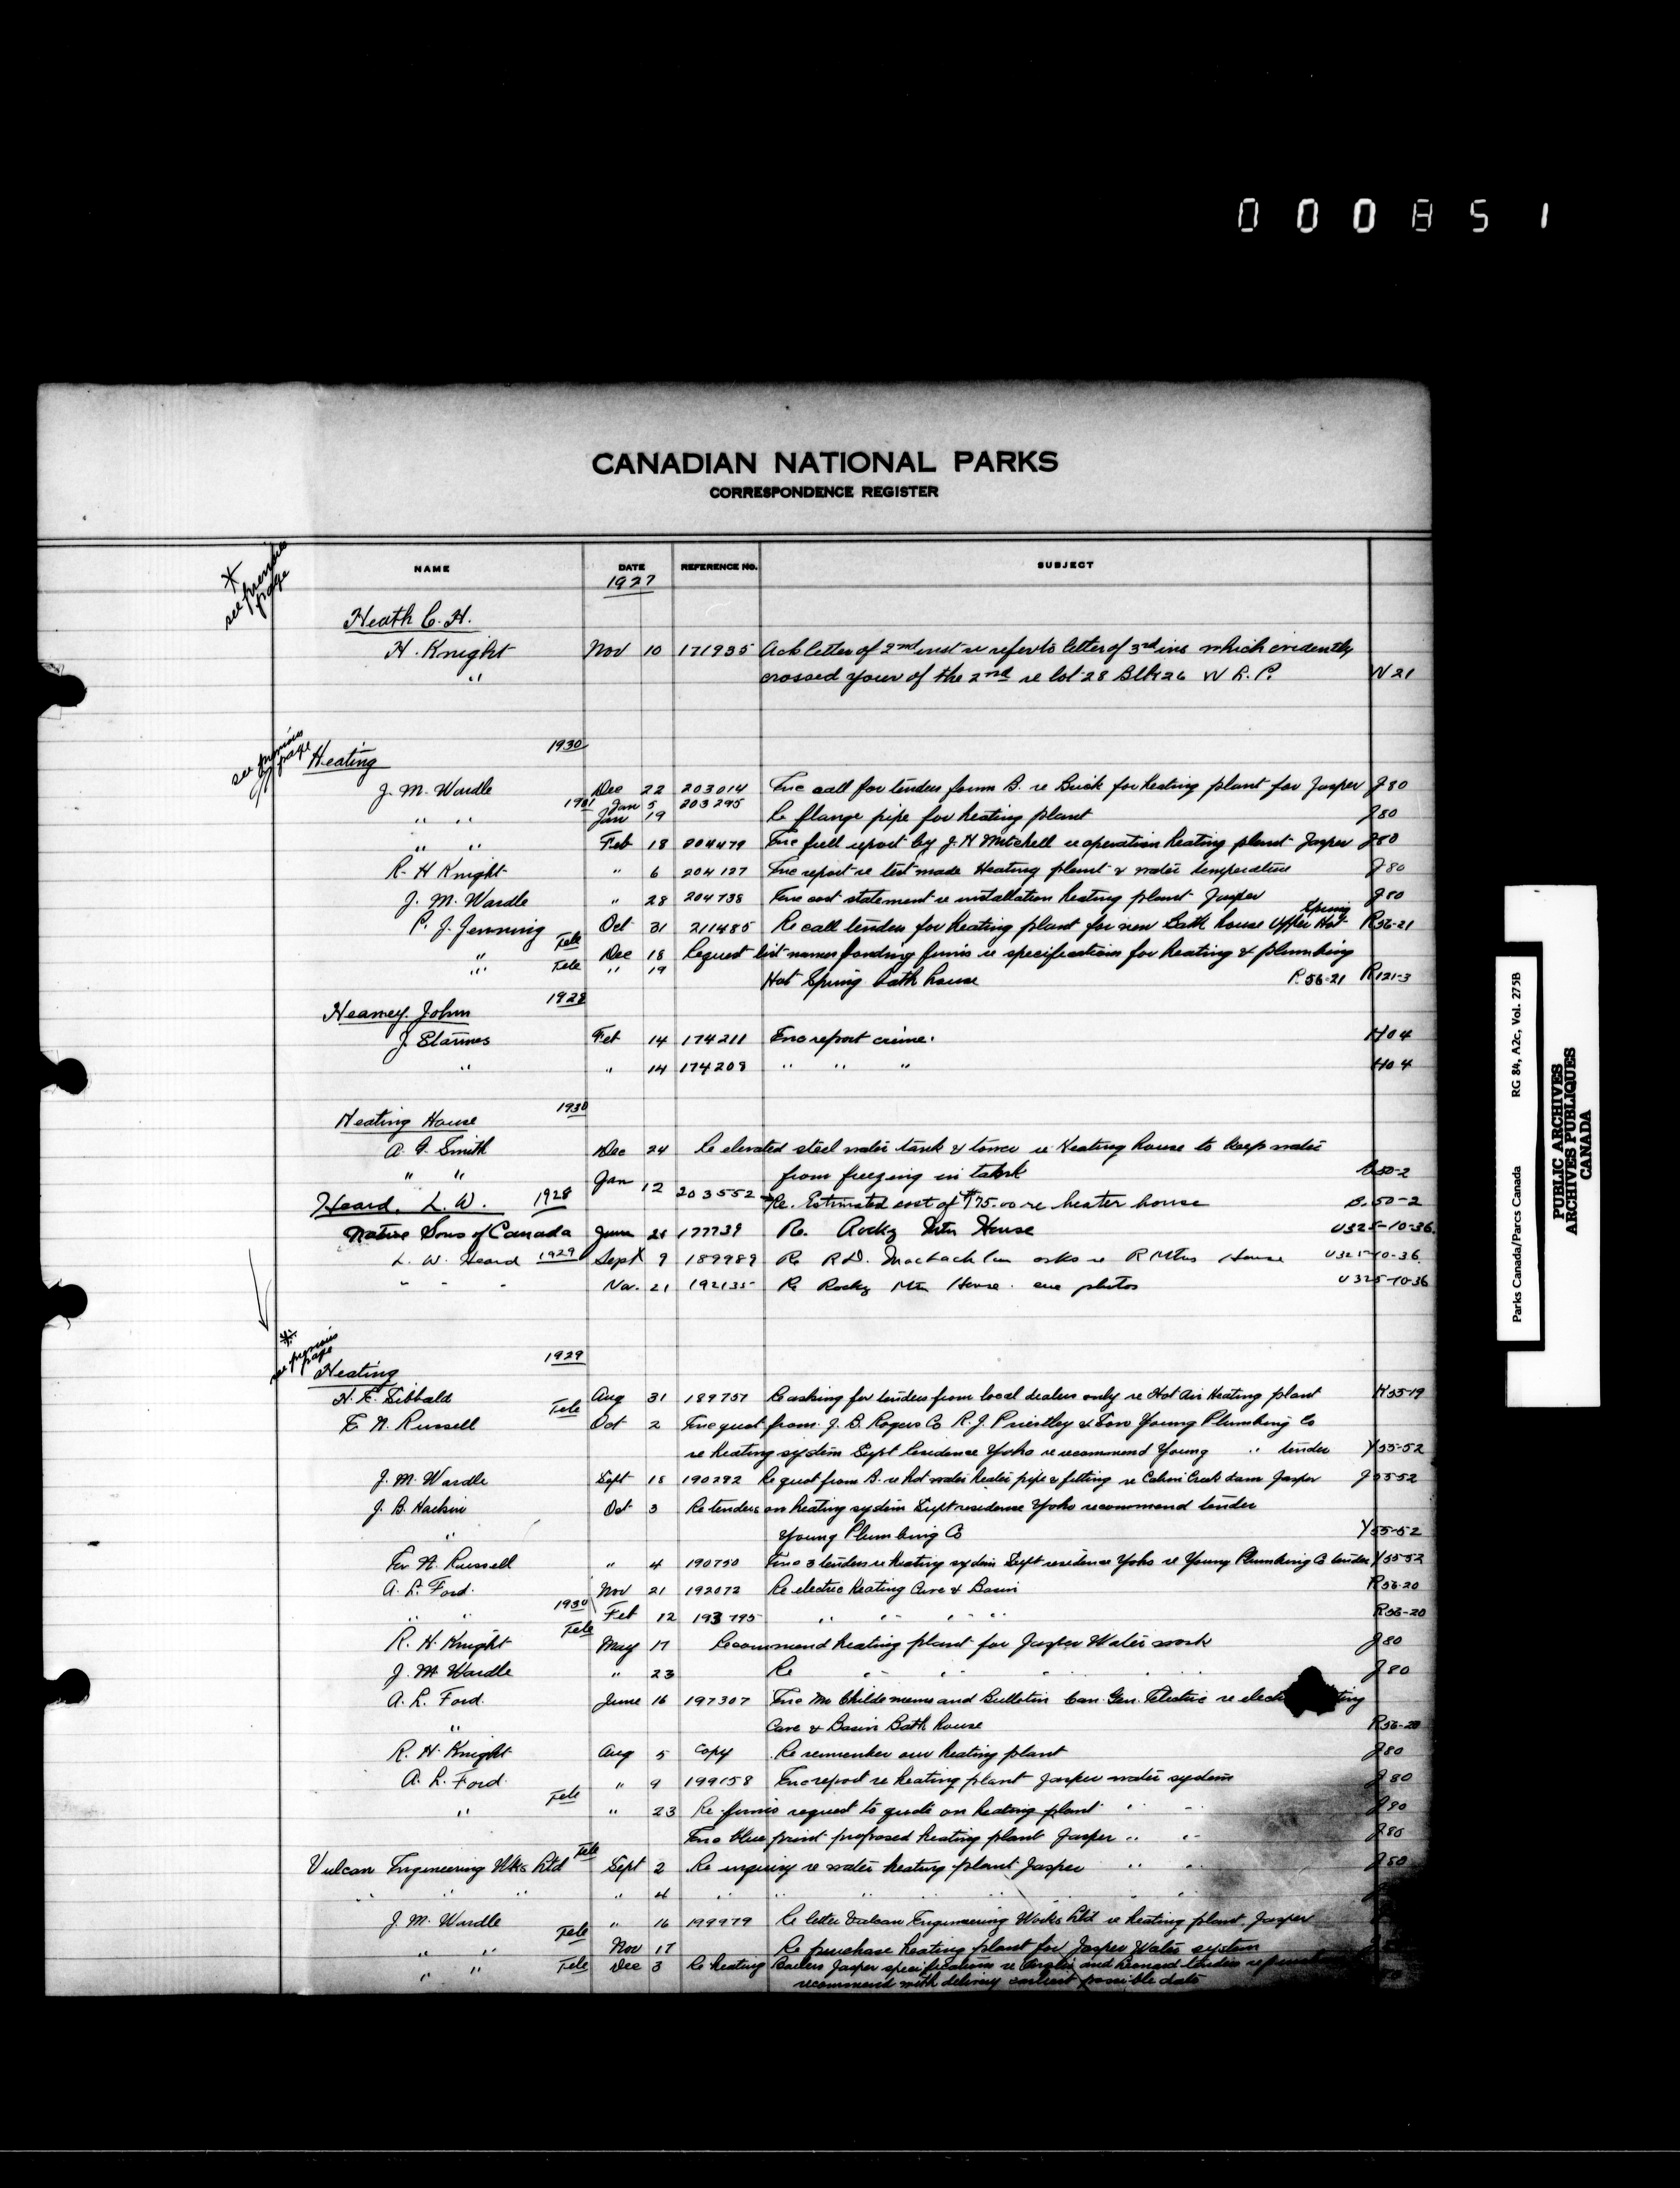 000851
CANADIAN NATIONAL PARKS
CORRESPONDENCE REGISTER
NAME DATE REFERENCE NO. SUBJECT
1927
* see previous page
Heath C. H.
H. Knight Nov 10 171935 Ack letter of 2nd inst re refer to letter of 3rd ins which evidently
" crossed your of the 2nd re lot 28 Blk 26 W L. P. W 21
see previous page
Heating 1930
J. M. Wardle Dec 22 203014 Enc call for tenders form B. re Brick for heating plant for Jasper J 80
1931 Jan 5 203295
" " Jan 19 Re flange pipe for heating plant J 80
" " Feb 18 204479 Enc full report by J. H Mitchell re operation heating plant Jasper J 80
R. H Knight " 6 204127 Enc report re test made Heating plant & water temperature J 80
J. M. Wardle " 28 204738 Enc cost statement re installation heating plant Jasper J 80
P. J. Jenning Oct 31 211485 Re call tenders for heating plant for new Bath house Upper Hot Spring R56-21
" Tele Dec 18 Request list names bonding firms re specifications for heating & plumbing
" Tele " 19 Hot Spring bath house R 56-21 R121-3
Heaney John 1928
J. Starnes Feb 14 174211 Enc report crime. H04
" " 14 174209 " " " H04
Heating House 1930
A. G. Smith Dec 24 Re elevated steel water tank & tower re Heating house to keep water
" " from freezing in tank 50-2
Jan 12 203552 Re. Estimated cost of $175.00 re heater house B. 50-2
Heard. L. W. 1928
Native Sons of Canada June 28 177739 Re. Rocky Mtn House U325-10-36
L. W. Heard 1929 Sept 9 189989 Re R.D. asks re R Mtns House U325-10-36
" " " Nov. 21 192135 Re Rocky Mtn House. enc photos U325-10-36
* see previous page
Heating 1929
H. E. Sibbald Aug 31 189757 Re asking for tenders from local dealers only re Hot Air Heating plant K55-19
E. N. Russell Tele Oct 2 Enc quot from. J. B. Rogers Co R. J. Priestley & Son Young Plumbing Co
re heating system Supt Residence Yoho re recommend Young " tender Y55-52
J. M. Wardle Sept 18 190292 Re quot from B. re hot water heater pipe & fitting re Cabin Creek dam Jasper J55-52
J. B. Harkin Oct 3 Re tenders on heating system Supt residence Yoho recommend tender
" Young Plumbing Co Y55-52
E. N. Russell " 4 190750 Enc 3 tenders re heating system Supt residence Yoho re Young Plumbing Co tender Y55-52
A. L. Ford. Nov 21 192072 Re electric heating Cave & Basin R56-20
" " 1930 Feb 12 193795 " " " " R56-20
R. H. Knight Tele May 17 Recommend heating plant for Jasper Water work J 80
J. M Wardle " 23 Re " " " " J 80
A. L. Ford. June 16 197307 Enc Mr Childe memo and Bulletin Can. Gen. Electric re
" Cave & Basin Bath house R56-20
R. H. Knight Aug 5 Copy Re remember our heating plant J 80
A. L. Ford. " 9 199158 Enc report re heating plant Jasper water system J 80
" Tele " 23 Re firms request to quote on heating plant " " J 80
Enc blue print proposed heating plant Jasper " " J 80
Vulcan Engineering Wks Ltd Tele Sept 2 Re inquiry re water heating plant Jasper " " J 80
" " " " 4 " " " " " " "
J. M. Wardle " 16 199979 Re letter Vulcan Engineering Works Ltd re heating plant Jasper
" " Tele Nov 17 Re purchase heating plant for Jasper Water system
" " Tele Dec 3 Re heating Boilers Jasper specifications re and Leonard tenders re
recommend with delivery earliest possible date
Parks Canada/Parcs Canada RG 84, A2c, Vol. 275B
PUBLIC ARCHIVES
ARCHIVES PUBLIQUES
CANADA